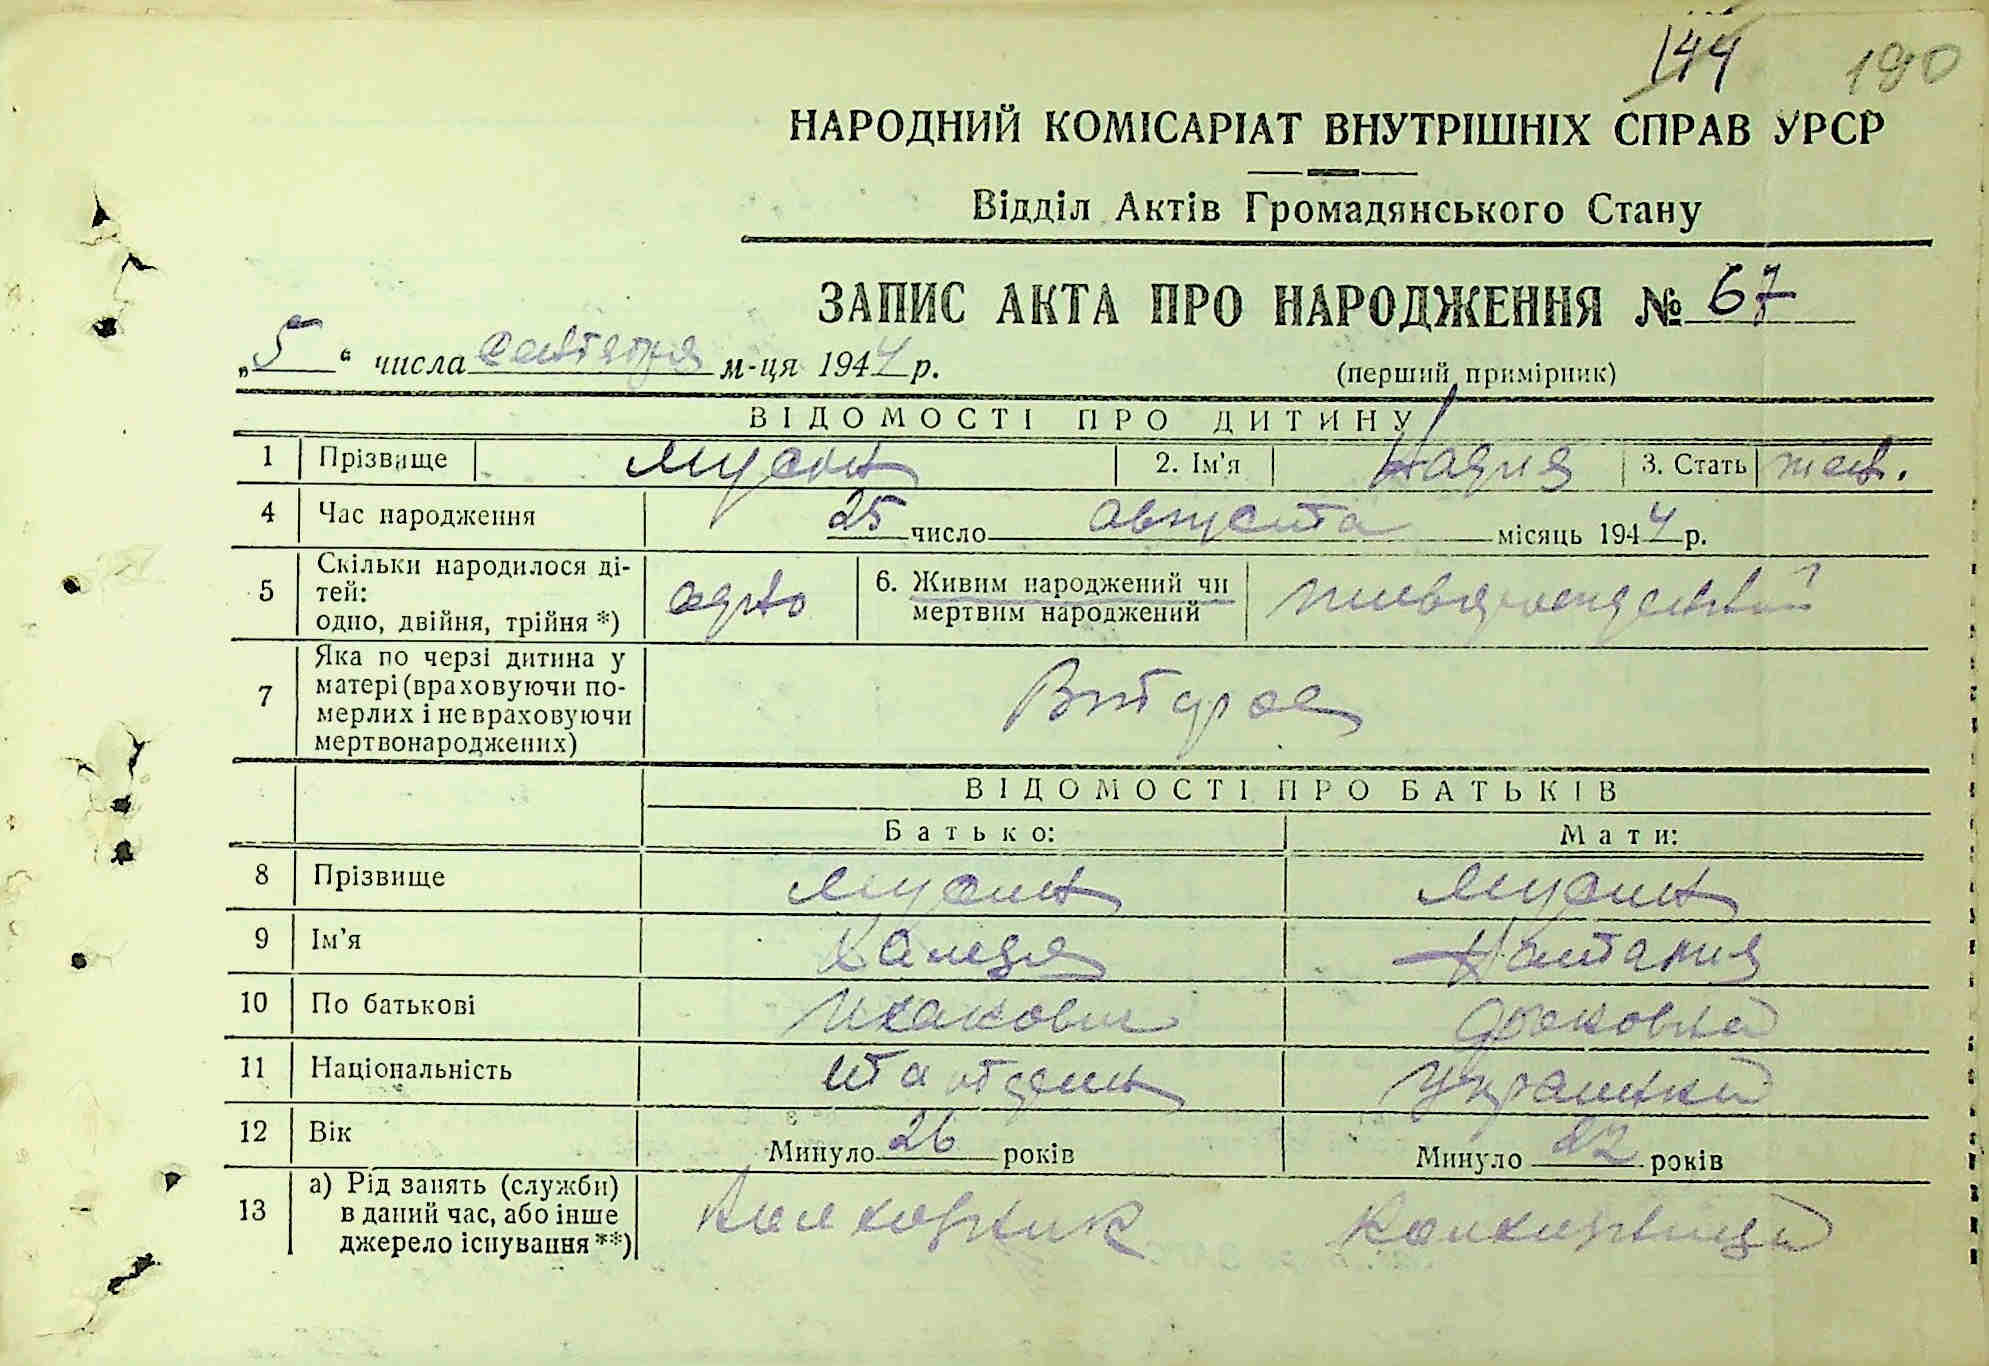 144 190
НАРОДНИЙ КОМІСАРІАТ ВНУТРІШНІХ СПРАВ УРСР
Відділ Актів Громадянського Стану
ЗАПИС АКТА ПРО НАРОДЖЕННЯ № 67
„5“ числа сентября м-ця 1944 р.
(перший примірник)
ВІДОМОСТІ ПРО ДИТИНУ
1 Прізвище Мусин 2. Ім'я Надия 3. Стать жен.
4 Час народження 25 число августа місяць 1944 р.
5 Скільки народилося ді-
тей:
одно, двійня, трійня *) одно 6. Живим народжений чи
мертвим народжений
7 Яка по черзі дитина у
матері (враховуючи по-
мерлих і не враховуючи
мертвонароджених) Вторая
ВІДОМОСТІ ПРО БАТЬКІВ
Батько: Мати:
8 Прізвище Мусин Мусин
9 Ім'я
10 По батькові
11 Національність Украинка
12 Вік Минуло 26 років Минуло 22 років
13 а) Рід занять (служби)
в даний час, або інше
джерело існування **) Колхозник Колхозница